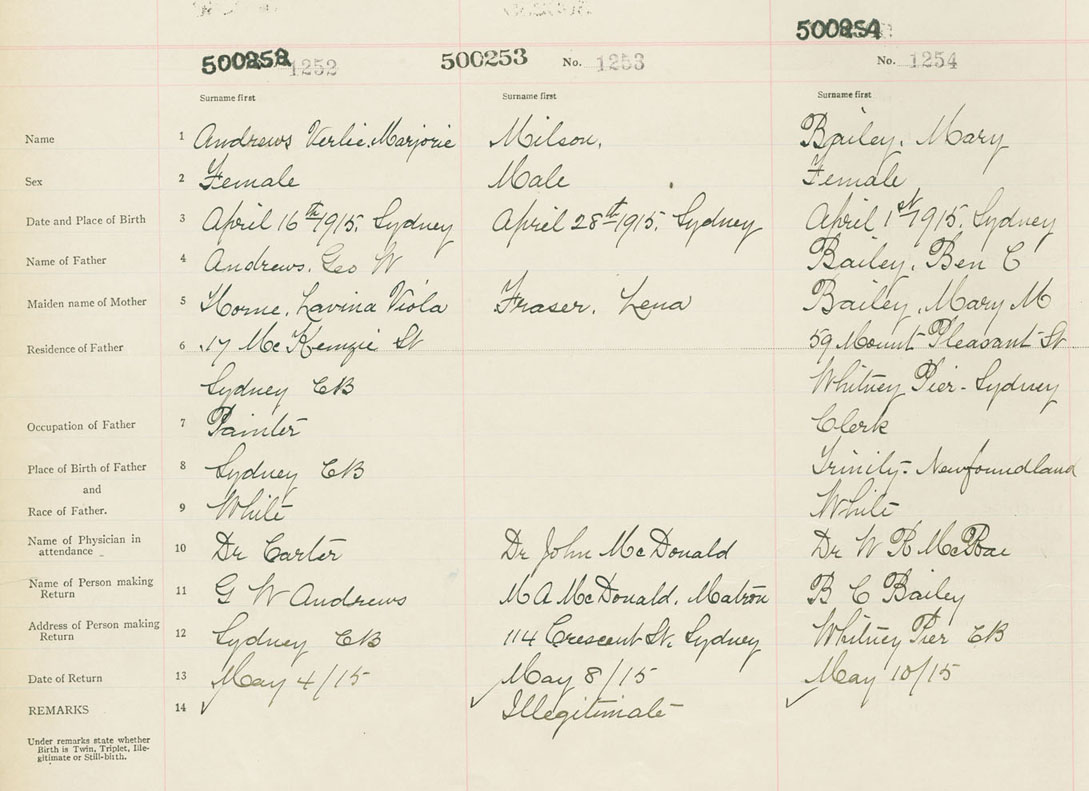 500252 1252 500253 No. 1253 500254 No. 1254
Surname first Surname first Surname first
Name 1 Andrews Verlie Marjorie Milson, Bailey, Mary
Sex 2 Female Male Female
Date and Place of Birth 3 April 16th 1915, Sydney April 28th 1915, Sydney April 1st 1915, Sydney
Name of Father 4 Andrews, Geo W Bailey, Ben C
Maiden name of Mother 5 Horne, Lavina Viola Fraser, Lena Bailey, Mary M
Residence of Father 6 17 McKenzie St 59 Mount Pleasant St
Sydney CB Whitney Pier - Sydney
Occupation of Father 7 Painter Clerk
Place of Birth of Father 8 Sydney CB Trinity - Newfoundland
and
Race of Father. 9 White White
Name of Physician in
attendance 10 Dr Carter Dr John McDonald Dr W R McRae
Name of Person making
Return 11 G W Andrews M A McDonald, Matron B C Bailey
Address of Person making
Return 12 Sydney CB 114 Crescent St, Sydney Whitney Pier CB
Date of Return 13 May 4/15 May 8/15 May 10/15
REMARKS 14 Illegitimate
Under remarks state whether
Birth is Twin, Triplet, Ille-
gitimate or Still-birth.